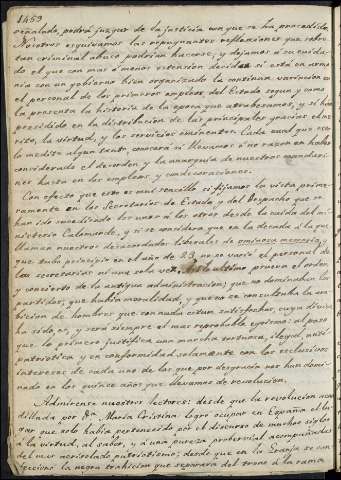 1453
señalado, podrá juzgar de la justicia con que se ha procedido.
Nosotros esquivamos las repugnantes reflexiones que sobre
tan criminal abuso podrian hacerse, y dejamos á su cuida-
do el que con mas ó menos estension decidan si está en armo-
nia con un gobierno bien organizado la continua variacion en
el personal de los primeros empleos del Estado segun y como
la presenta la historia de la epoca que atrabesamos, y si han
presidido en la distribucion de las principales gracias el me-
rito, la virtud, y los servicios eminentes. Cada cual que es-
to medite algun tanto, conocerá si llevamos ó no razon en haber
considerado el desorden y la anarquia de nuestros mandari-
nes hasta en los empleos y condecoraciones.
Con efecto que esto es muy sencillo si fijamos la vista prime-
ramente en los Secretarios de Estado y del Despacho que se
han ido sucediendo los unos á los otros desde la caida del mi-
nisterio Calomarde, y si se considera que en la decada á la que
llaman nuestros desacordados liberales de ominosa memoria, y
que tubo principio en el año de 23, no se varió el personal de
las secretarias ni una sola vez. Esto ultimo prueva el orden
y concierto de la antigua administracion; que no dominaban los
partidos, que habia moralidad, y que no se consultaba la am-
bicion de hombres que con nada estan satisfechos, cuya divisa
ha sido, es, y será siempre el mas reprobable egoismo: al paso
que lo primero justifica una marcha tortuosa, ilegal, anti
patriotica y en conformidad solamente con los esclusivos
intereses de cada uno de los que por desgracia nos han domi-
nado en los quince años que llevamos de revolucion.
Admirense nuestros lectores: desde que la revolucion acau-
dillada por Dª. Maria Cristina logró ocupar en España el lu-
gar que solo habia pertenecido por el discurso de muchos siglos
á la virtud, al saber, y á una pureza proberbial acompañadas
del mas acrisolado patriotismo; desde que en la Granja se con-
feccionó la negra traicion que separara del trono á la rama